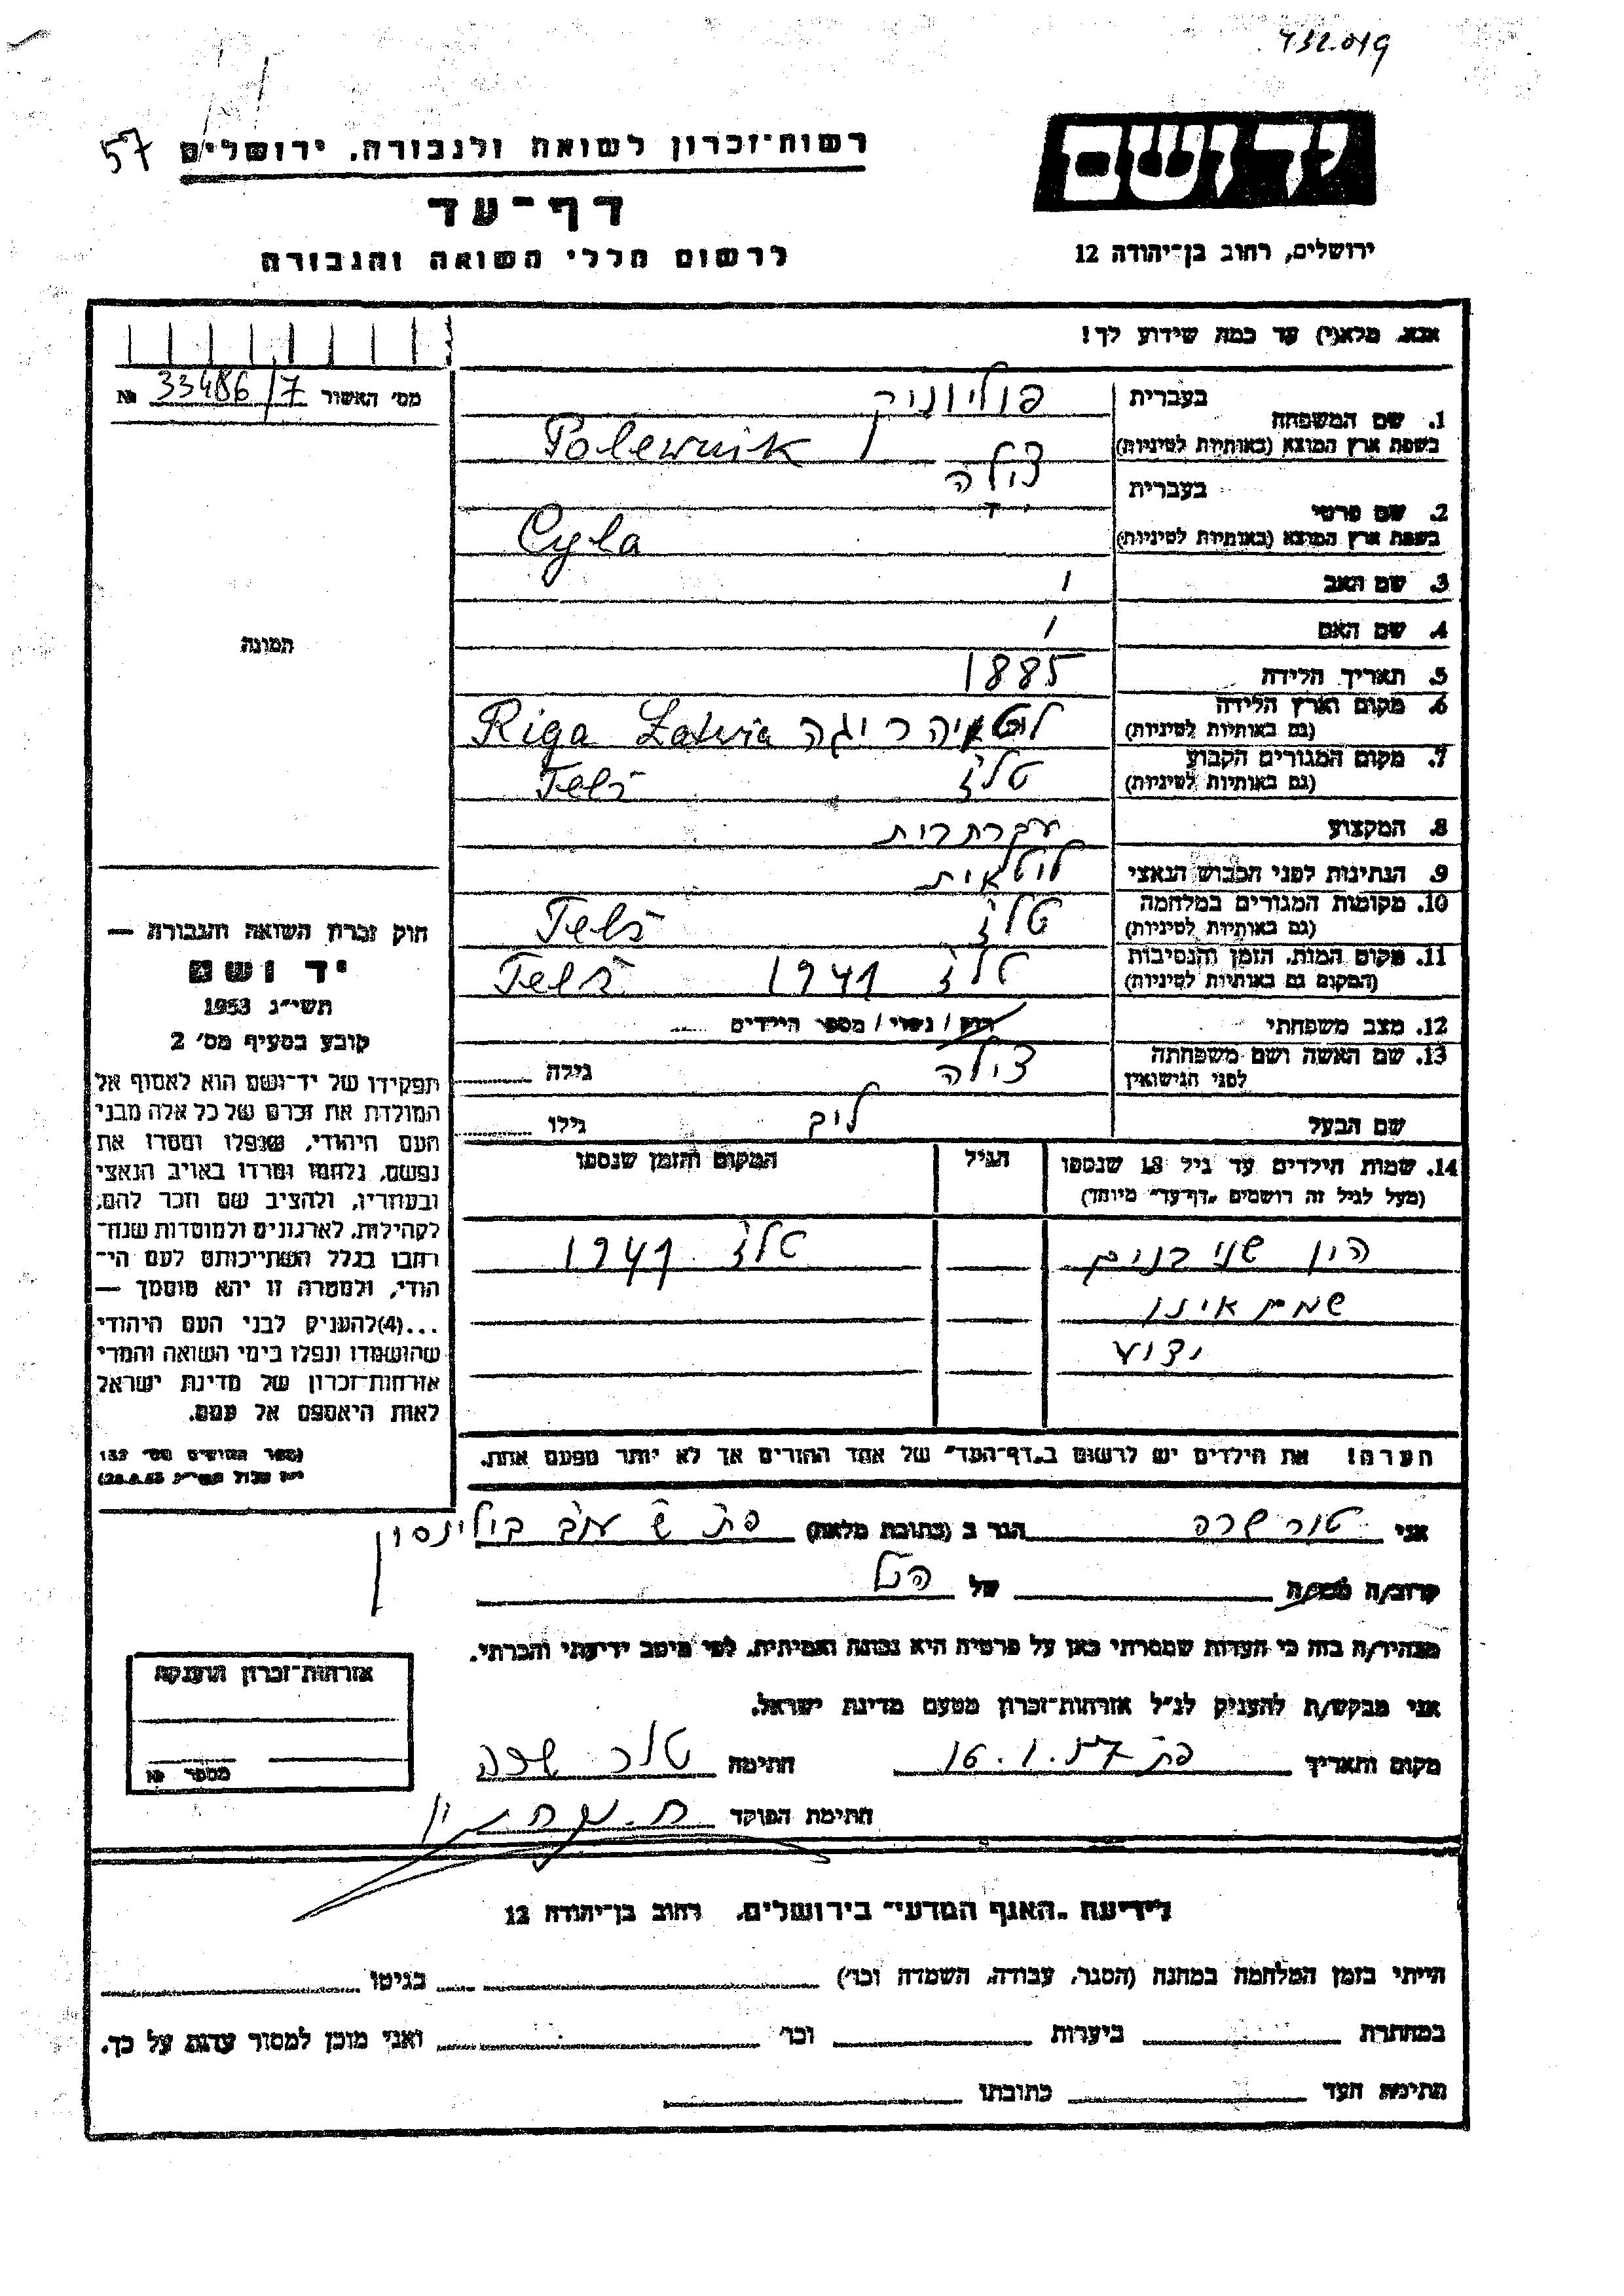 432.019
יד ושם
ירושלים, רחוב בן־יהודה 12
57
רשות־זכרון לשואה ולגבורה. ירושלים
דף־עד
לרשום חללי השואה והגבורה
אנא. מלא(י) עד כמה שידוע לך!
מס׳ האשור 33486/7 №
1. שם המשפחה
בעברית פוליוניק
בשפת ארץ המוצא (באותיות לטיניות) Polewnik
2. שם פרטי
בעברית צילה
בשפת ארץ המוצא (באותיות לטיניות) Cyla
3. שם האב /
4. שם האם /
5. תאריך הלידה 1885
6. מקום וארץ הלידה
(גם באותיות לטיניות) לטאיה ריגה Riga Latvia
7. מקום המגורים הקבוע
(גם באותיות לטיניות) טלז Telš
8. המקצוע עקרת בית
9. הנתינות לפני הכבוש הנאצי ליטאית
10. מקומות המגורים במלחמה
(גם באותיות לטיניות) טלז Telš
11. מקום המות, הזמן והנסיבות
(המקום גם באותיות לטיניות) טלז 1941 Telš
12. מצב משפחתי רווק / נשוי / מספר הילדים
13. שם האשה ושם משפחתה
לפני הנישואין צילה גילה
שם הבעל לייב גילו
14. שמות הילדים עד גיל 18 שנספו
(מעל לגיל זה רושמים „דף־עד״ מיוחד)
הגיל
המקום והזמן שנספו
היו שני בנים טלז 1941
שמם אינו
ידוע
הערה! את הילדים יש לרשום ב„דף־העד״ של אחד ההורים אך לא יותר מפעם אחת.
תמונה
חוק זכרון השואה והגבורה —
יד ושם
תשי״ג 1953
קובע בסעיף מס׳ 2
תפקידו של יד־ושם הוא לאסוף אל
המולדת את זכרם של כל אלה מבני
העם היהודי, שנפלו ומסרו את
נפשם, נלחמו ומרדו באויב הנאצי
ובעוזריו, ולהציב שם וזכר להם,
לקהילות, לארגונים ולמוסדות שנח־
רחבו בגלל השתייכותם לעם הי־
הודי, ולמטרה זו יהא מוסמך —
...(4)להעניק לבני העם היהודי
שהושמדו ונפלו בימי השואה והמרי
אזרחות־זכרון של מדינת ישראל
לאות היאספם אל עמם.
(ספר החוקים מס׳ 132
אני טור שרה הגר ב (כתובת מלאה) פת ש עב בילינסון
קרוב/ה מכר/ה של הנ״ל
מצהיר/ה בזה כי העדות שמסרתי כאן על פרטיה היא נכונה ואמיתית, לפי מיטב ידיעתי והכרתי.
אני מבקש/ת להעניק לנ״ל אזרחות־זכרון מטעם מדינת ישראל.
מקום ותאריך פת 16.1.57 חתימה טור שרה
חתימת הפוקד
אזרחות־זכרון הוענקה
מספר №
לידיעת „האגף המדעי״ בירושלים, רחוב בן־יהודה 12
הייתי בזמן המלחמה במחנה (הסגר, עבודה, השמדה וכו׳) בגיטו
במחתרת ביערות וכו׳ ואני מוכן למסור עדות על כך.
חתימת העד כתובתו